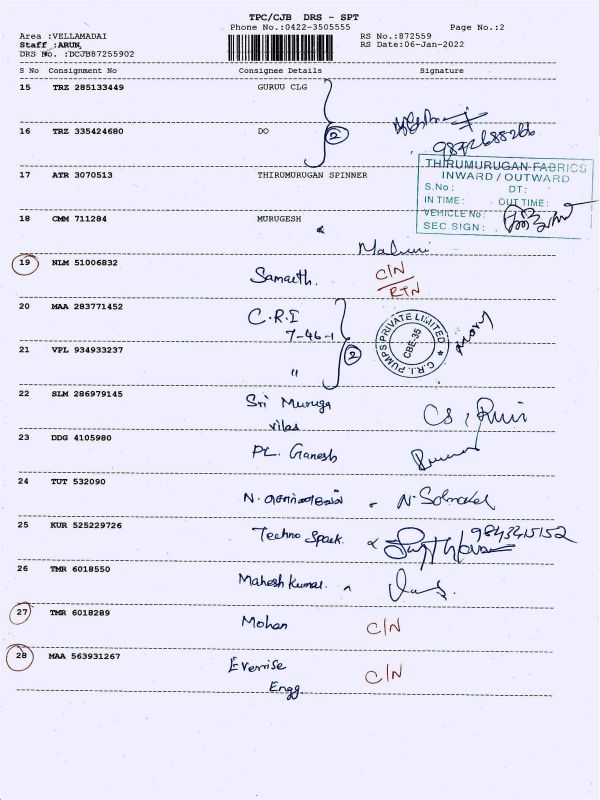 TPC/CJB DRS - SPT
Phone No.:0422-3505555
Page No.:2
Area :VELLAMADAI
RS No.:872559
Staff :ARUN,
RS Date:06-Jan-2022
DRS No. :DCJB87255902
S No Consignment No Consignee Details Signature
15 TRZ 285133449 GURUU CLG
16 TRZ 335424680 DO 2
9842688266
17 ATR 3070513 THIRUMURUGAN SPINNER
THIRUMURUGAN FABRICS
INWARD / OUTWARD
S.No: DT:
IN TIME: OUT TIME:
VEHICLE No:
SEC SIGN:
18 CMM 711284 MURUGESH
19 NLM 51006832 Samarth. C/N
RTN
20 MAA 283771452 C.R.I
7-46-1
2
C.R.I. PUMPS PRIVATE LIMITED
CBE-35
21 VPL 934933237 "
22 SLM 286979145 Sri Muruga
vilas
23 DDG 4105980 PL. Ganesh
24 TUT 532090
25 KUR 525229726 Techno Spark. 9843215152
26 TMR 6018550 Mahesh Kumar.
27 TMR 6018289 Mohan C/N
28 MAA 563931267 Everrise C/N
Engg.